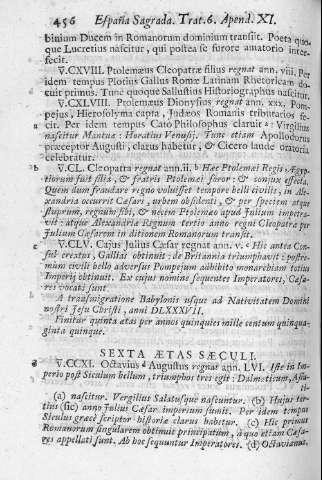 456 España Sagrada. Trat. 6. Apend. XI.
binium Ducem in Romanorum dominium transiit. Poeta quo-
que Lucretius nascitur, qui postea se furore amatorio inter-
fecit.
V.CXVIII. Ptolemæus Cleopatræ filius regnat ann. viii. Per
idem tempus Plotius Gallus Romæ Latinam Rhetoricam do-
cuit primus. Tunc quoque Sallustius Historiographus nascitur.
V.CXLVIII. Ptolemæus Dionysius regnat ann. xxx. Pom-
pejus, Hierosolyma capta, Judæos Romanis tributarios fe-
cit. Per idem tempus Cato Philosophus claruit a: Virgilius
nascitur Mantuæ: Horatius Venusij. Tunc etiam Apollodorus
præceptor Augusti, clarus habetur, & Cicero laude oratoria
celebratur.
b V.CL. Cleopatra regnat ann. ii. b Hæc Ptolemæi Regis Ægyp-
tiorum fuit filia, & fratris Ptolemæi soror & conjux effecta.
Quem dum fraudare regno voluisset tempore belli civilis, in Ale-
xandria occurrit Cæsari, urbem obsidenti, & per speciem atque
stuprum, regnum sibi, & necem Ptolemæo apud Julium impetra-
vit: atque Alexandriæ Regnum tertio anno regni Cleopatræ per
Julium Cæsarem in ditionem Romanorum transit.
c V.CLV. Cajus Julius Cæsar regnat ann. v. c Hic antea Con-
sul creatus, Galliat obtinuit: de Britannia triumphavit: postre-
mum civili bello adversus Pompejum adhibito monarchiam totius
Imperij obtinuit. Ex cujus nomine sequentes Imperatores, Cæsa-
res vocati sunt.
A transmigratione Babylonis usque ad Nativitatem Domini
nostri Jesu Christi, anni DLXXXVII.
Finitur quinta ætas per annos quinquies mille centum quinqua-
ginta quinque.
SEXTA ÆTAS SÆCULI.
V.CCXI. Octavius d Augustus regnat ann. LVI. Iste in Im-
perio post Siculum bellum, triumphos tres egit: Dalmaticum, Asia-
ti-
(a) nascitur. Vergilius Salutusque nascuntur. (b) Hujus ter-
tius (sic) anno Julius Cæsar imperium sumit. Per idem tempus
Siculus græcè scriptor historiæ clarus habetur. (c) Hic primus
Romanorum singularem obtinuit principatum, à quo etiam Cæsa-
res appellati sunt. Ab hoc sequuntur Imperatores. (d) Octavianus.